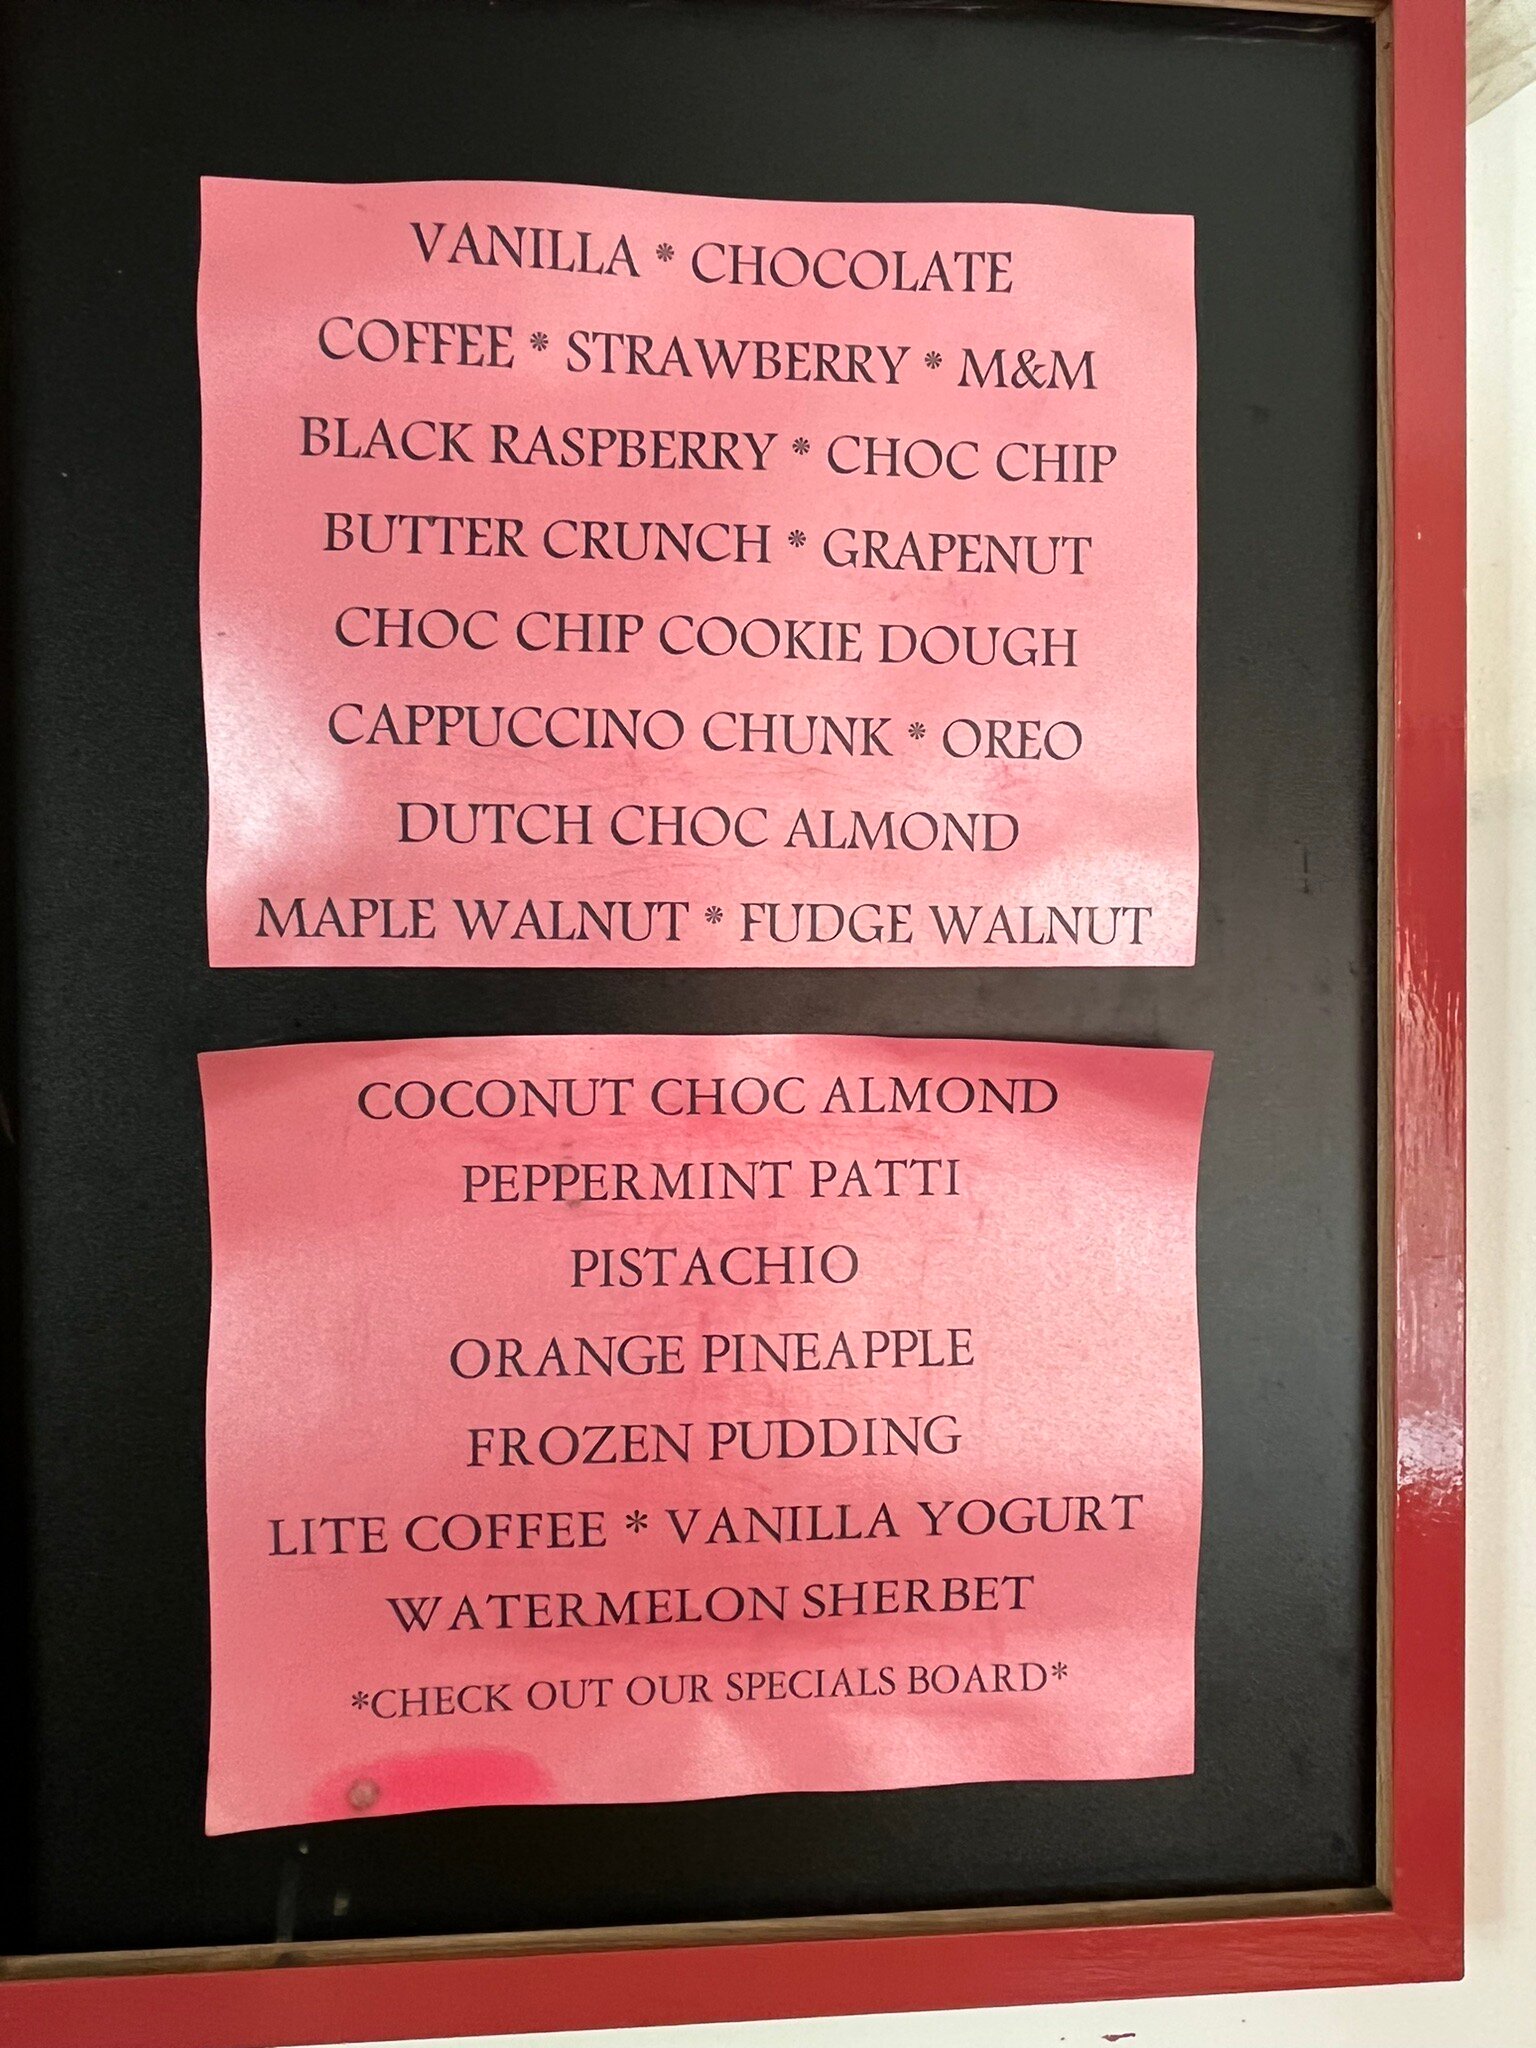 VANILLA * CHOCOLATE
COFFEE * STRAWBERRY * M&M
BLACK RASPBERRY * CHOC CHIP
BUTTER CRUNCH * GRAPENUT
CHOC CHIP COOKIE DOUGH
CAPPUCCINO CHUNK * OREO
DUTCH CHOC ALMOND
MAPLE WALNUT * FUDGE WALNUT
COCONUT CHOC ALMOND
PEPPERMINT PATTI
PISTACHIO
ORANGE PINEAPPLE
FROZEN PUDDING
LITE COFFEE * VANILLA YOGURT
WATERMELON SHERBET
*CHECK OUT OUR SPECIALS BOARD*